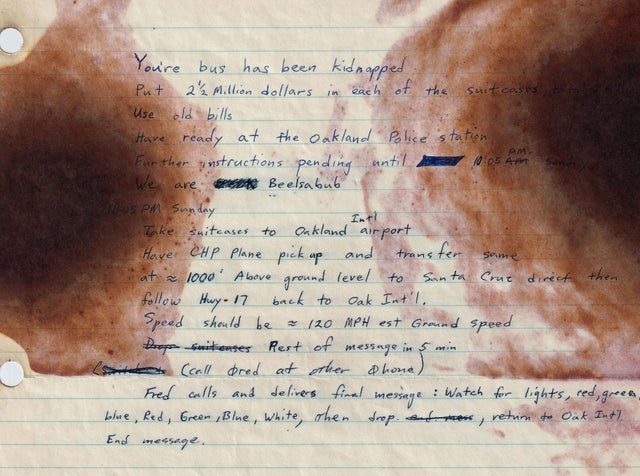 You're bus has been kidnapped
Put 2½ Million dollars in each of the suitcases
Use old bills
Have ready at the Oakland Police station
Further instructions pending until 10:05 PM AM Sunday
We are Beelsabub
05 PM Sunday
Take suitcases to Oakland Int'l airport
Have CHP Plane pick up and transfer same
at ≈ 1000' Above ground level to Santa Cruz direct then
follow Hwy-17 back to Oak Int'l.
Speed should be ≈ 120 MPH est Ground speed
Drop suitcases Rest of message in 5 min
(call Φred at other Φhone)
Fred calls and delivers final message: Watch for lights, red, green,
blue, Red, Green, Blue, White, then drop. end mess, return to Oak Int'l
End message.